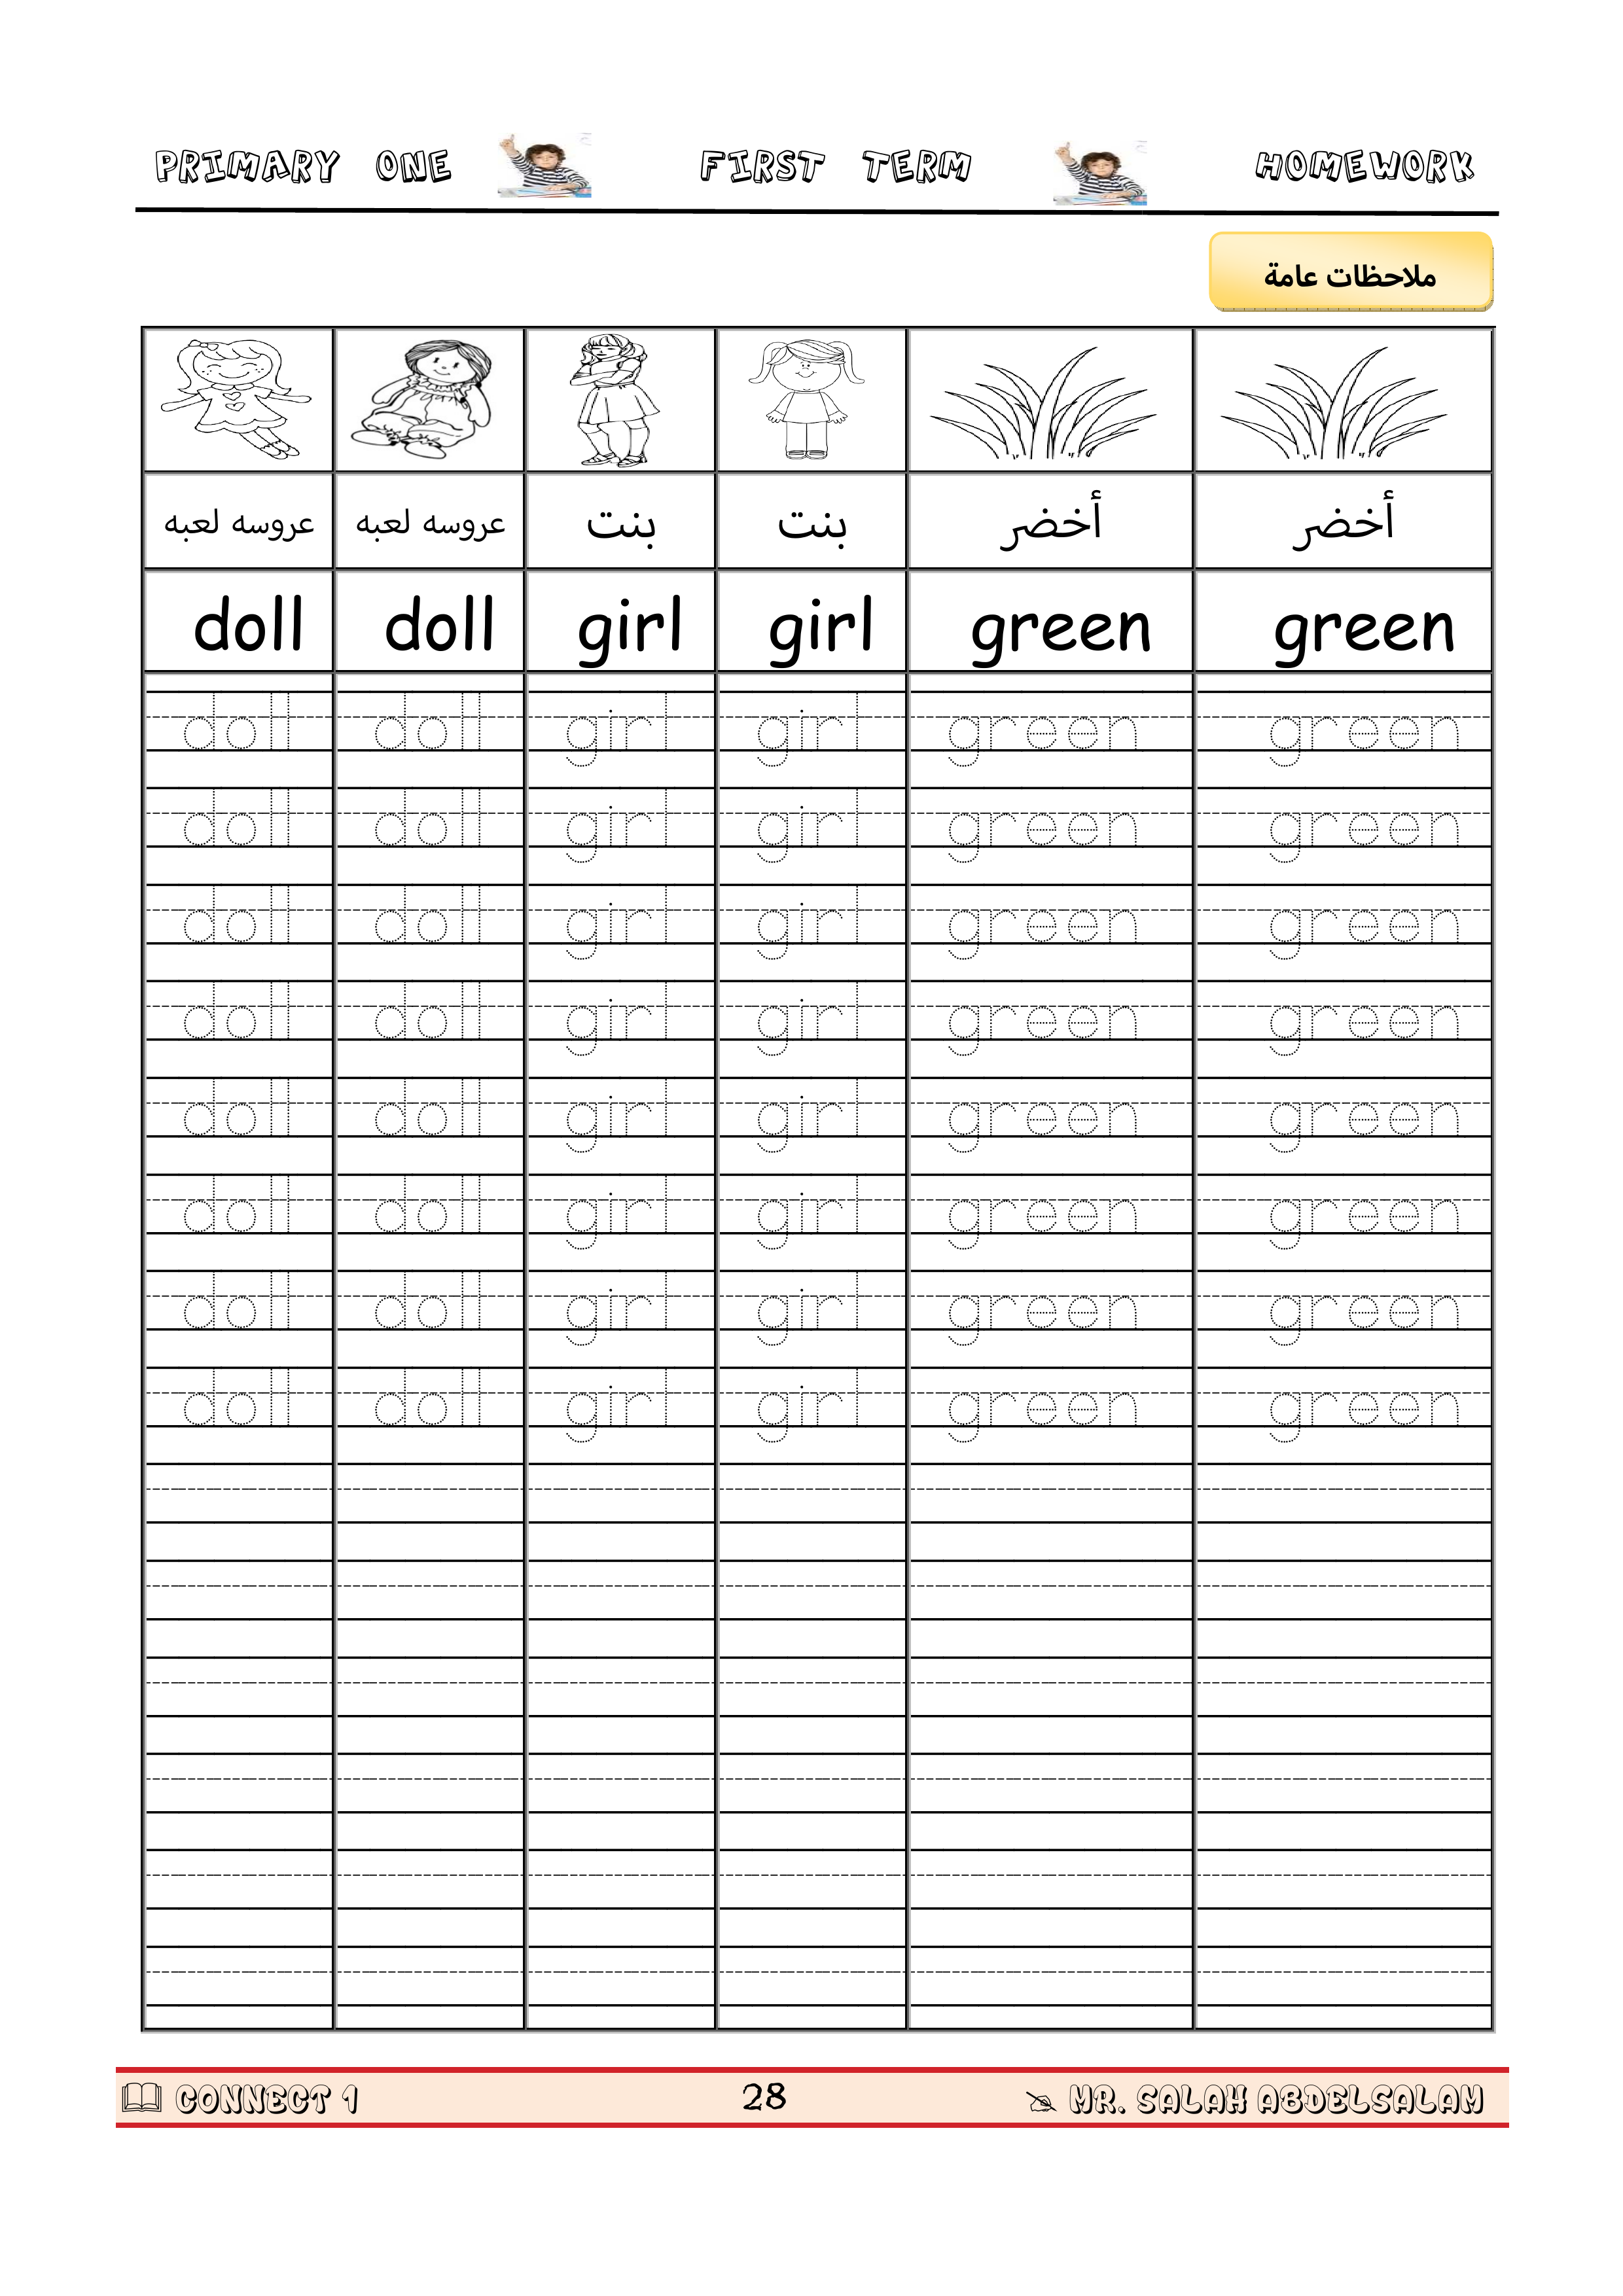 PRIMARY ONE FIRST TERM HOMEWORK
ملاحظات عامة
عروسه لعبه عروسه لعبه بنت بنت أخضر أخضر
doll doll girl girl green green
doll doll girl girl green green
doll doll girl girl green green
doll doll girl girl green green
doll doll girl girl green green
doll doll girl girl green green
doll doll girl girl green green
doll doll girl girl green green
doll doll girl girl green green
CONNECT 1 28 MR. SALAH ABDELSALAM